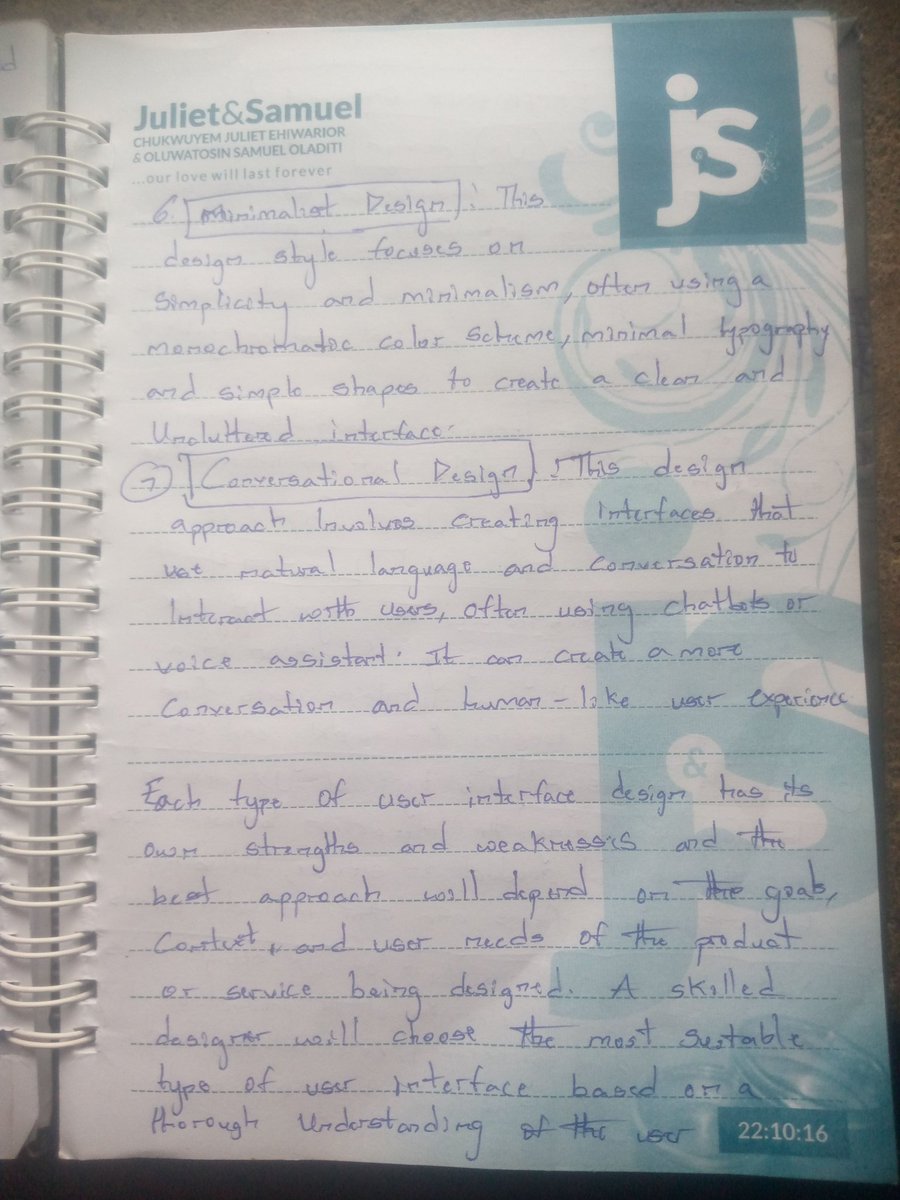 d
js
&
Juliet&Samuel
CHUKWUYEM JULIET EHIWARIOR
& OLUWATOSIN SAMUEL OLADITI
...our love will last forever
6. Minimalist Design: This
design style focuses on
Simplicity and minimalism, often using a
monochromatic color scheme, minimal typography
and simple shapes to create a clean and
Uncluttered interface.
7 Conversational Design: This design
approach Involves creating interfaces that
use natural language and conversation to
Interact with users, often using chatbots or
voice assistant. It can create a more
Conversation and human-like user experience
&
Each type of user interface design has its
own strengths and weaknesses and the
best approach will depend on the goals,
Context, and user needs of the product
or service being designed. A skilled
designer will choose the most suitable
type of user interface based on a
thorough Understanding of the user
22:10:16